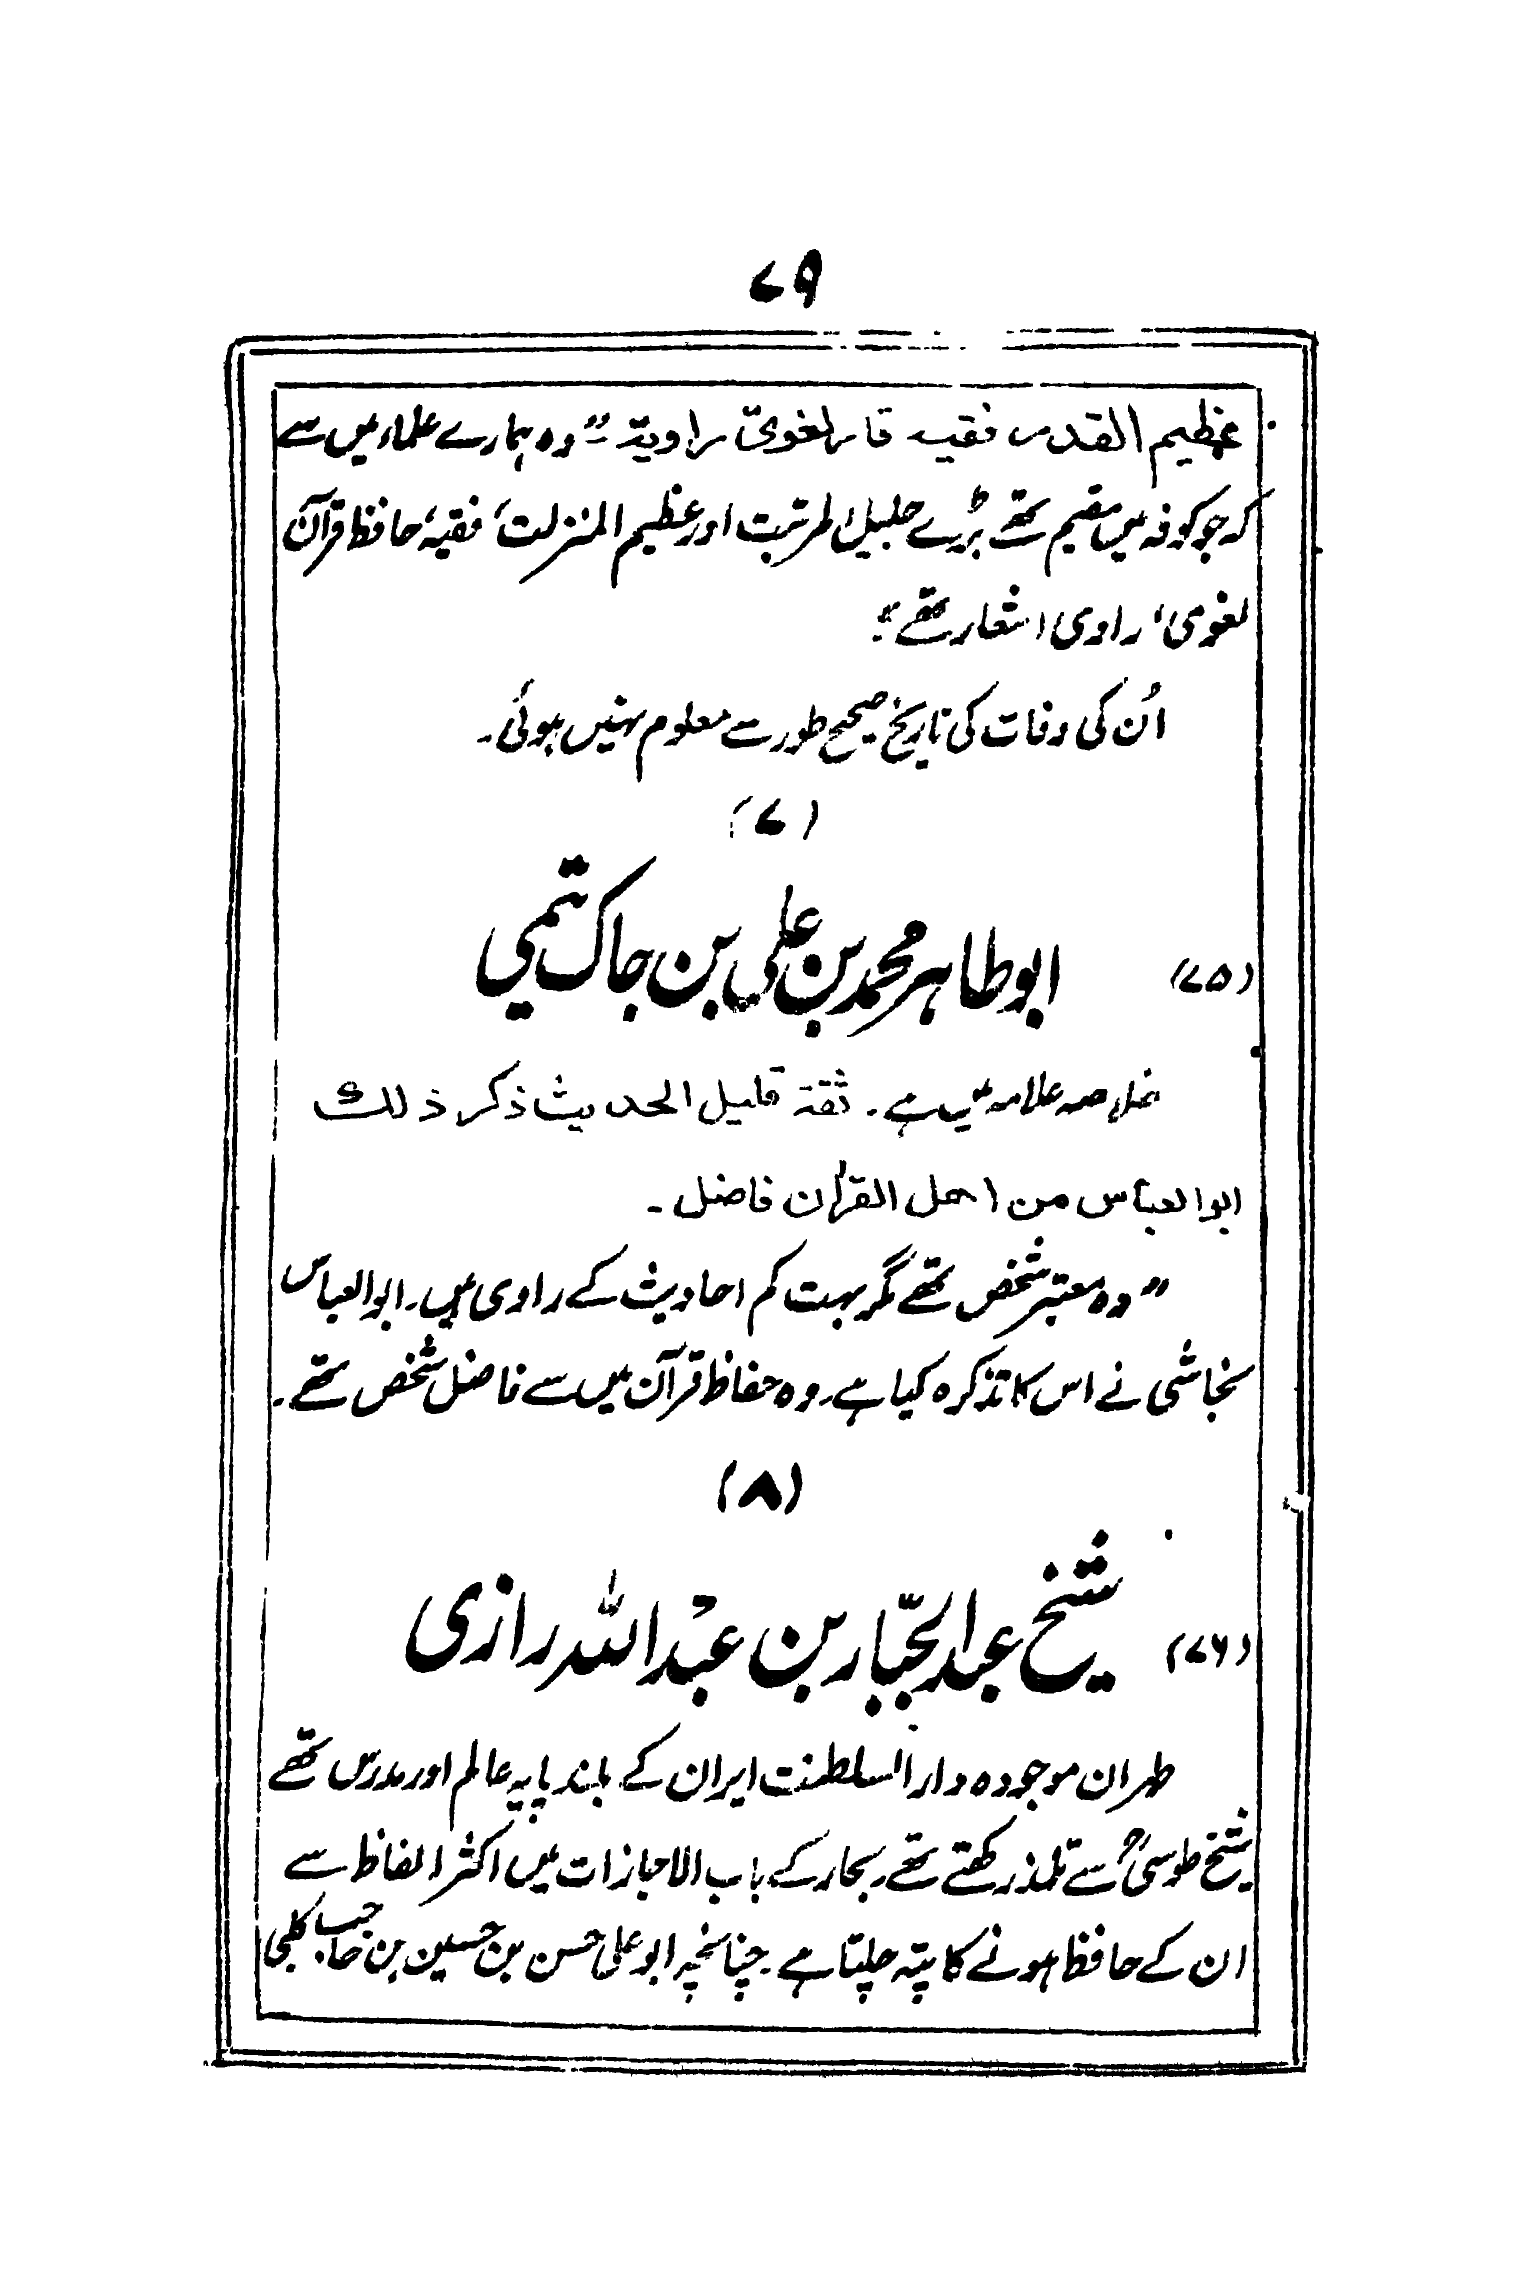 ۷۹
عظیم القدر فقیہ قار لغوی راویۃ۔" وہ ہمارے علماء میں سے
کہ جو کوفہ میں مقیم تھے بڑے جلیل المرتبت اور عظیم المنزلت، فقیہ، حافظ قرآن
لغوی، راوی اشعار تھے"۔
اُن کی وفات کی تاریخ صحیح طور سے معلوم نہیں ہوئی۔
(۷)
(۷۵) ابو طاہر محمد بن علی بن جاک تمیمی
خلاصہ علامہ میں ہے۔ ثقۃ قلیل الحدیث ذکر ذلك
ابوالعباس من اھل القراٰن فاضل۔
"وہ معتبر شخص تھے مگر بہت کم احادیث کے راوی ہیں۔ ابوالعباس
نجاشی نے اس کا تذکرہ کیا ہے۔ وہ حفاظ قرآن میں سے فاضل شخص تھے۔
(۸)
(۷۶) شیخ عبدالجبّار بن عبداللہ رازی
طہران موجودہ دار السلطنت ایران کے بلند پایہ عالم اور مدرس تھے
شیخ طوسیؒ سے تلمذ رکھتے تھے۔ بحار کے باب الاجازات میں اکثر الفاظ سے
ان کے حافظ ہونے کا پتہ چلتا ہے۔ چنانچہ ابو علی حسن بن حسین بن حاجب کلبی